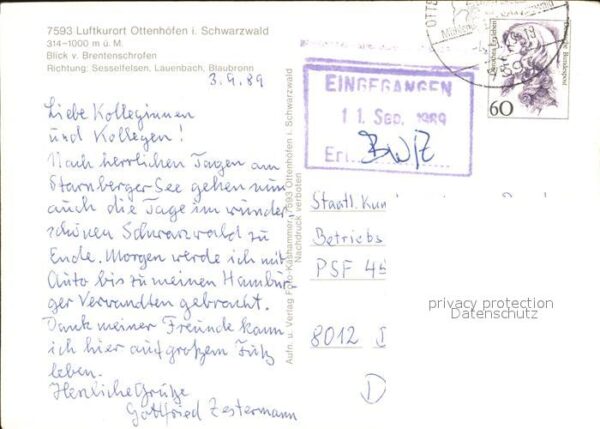 7593 Luftkurort Ottenhöfen i. Schwarzwald
314-1000 m ü. M.
Blick v. Brentenschrofen
Richtung: Sesselfelsen, Lauenbach, Blaubronn
3.9.89
Liebe Kolleginnen
und Kollegen!
Nach herrlichen Tagen am
Starnberger See gehen nun
auch die Tage im wunder-
schönen Schwarzwald zu
Ende. Morgen werde ich mit
Auto bis zu meinen Hambur-
ger Verwandten gebracht.
Dank meiner Freunde kann
ich hier auf großem Fuß
leben.
Herzliche Grüße
Gottfried Zestermann
Aufn. u. Verlag Foto-Kashammer, 7593 Ottenhöfen i. Schwarzwald
Nachdruck verboten
EINGEGANGEN
11. Sep. 1989
Erl.
BWZ
Deutsche Bundespost
60
Staatl. Kun
Betriebs
PSF 45
8012
D
privacy protection
Datenschutz